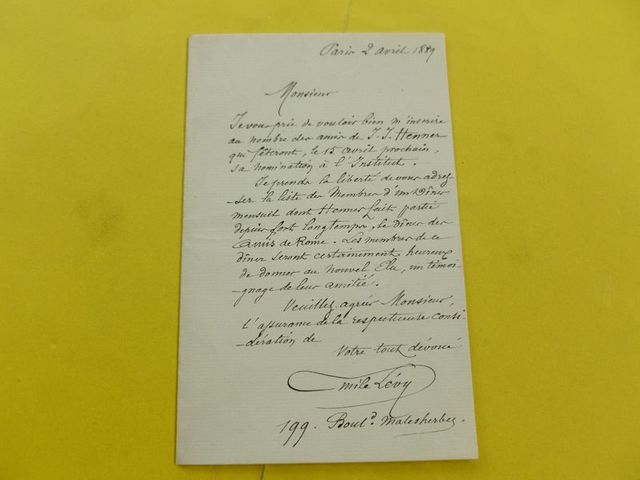 Paris 2 avril 1889
Monsieur
Je vous prie de vouloir bien m'inscrire
au nombre des amis de J. J. Henner
qui fêteront, le 15 avril prochain,
sa nomination à l'Institut.
Je prends la liberté de vous adres
-ser la liste des Membres d'un Dîner
mensuel dont Henner fait partie
depuis fort longtemps, le dîner des
Amis de Rome. Les membres de ce
dîner seront certainement heureux
de donner au nouvel Elu, un témoi-
-gnage de leur amitié.
Veuillez agréer Monsieur,
l'assurance de la respectueuse consi
-dération de
Votre tout dévoué
Emile Lévy
199. Boul.d Malesherbes.